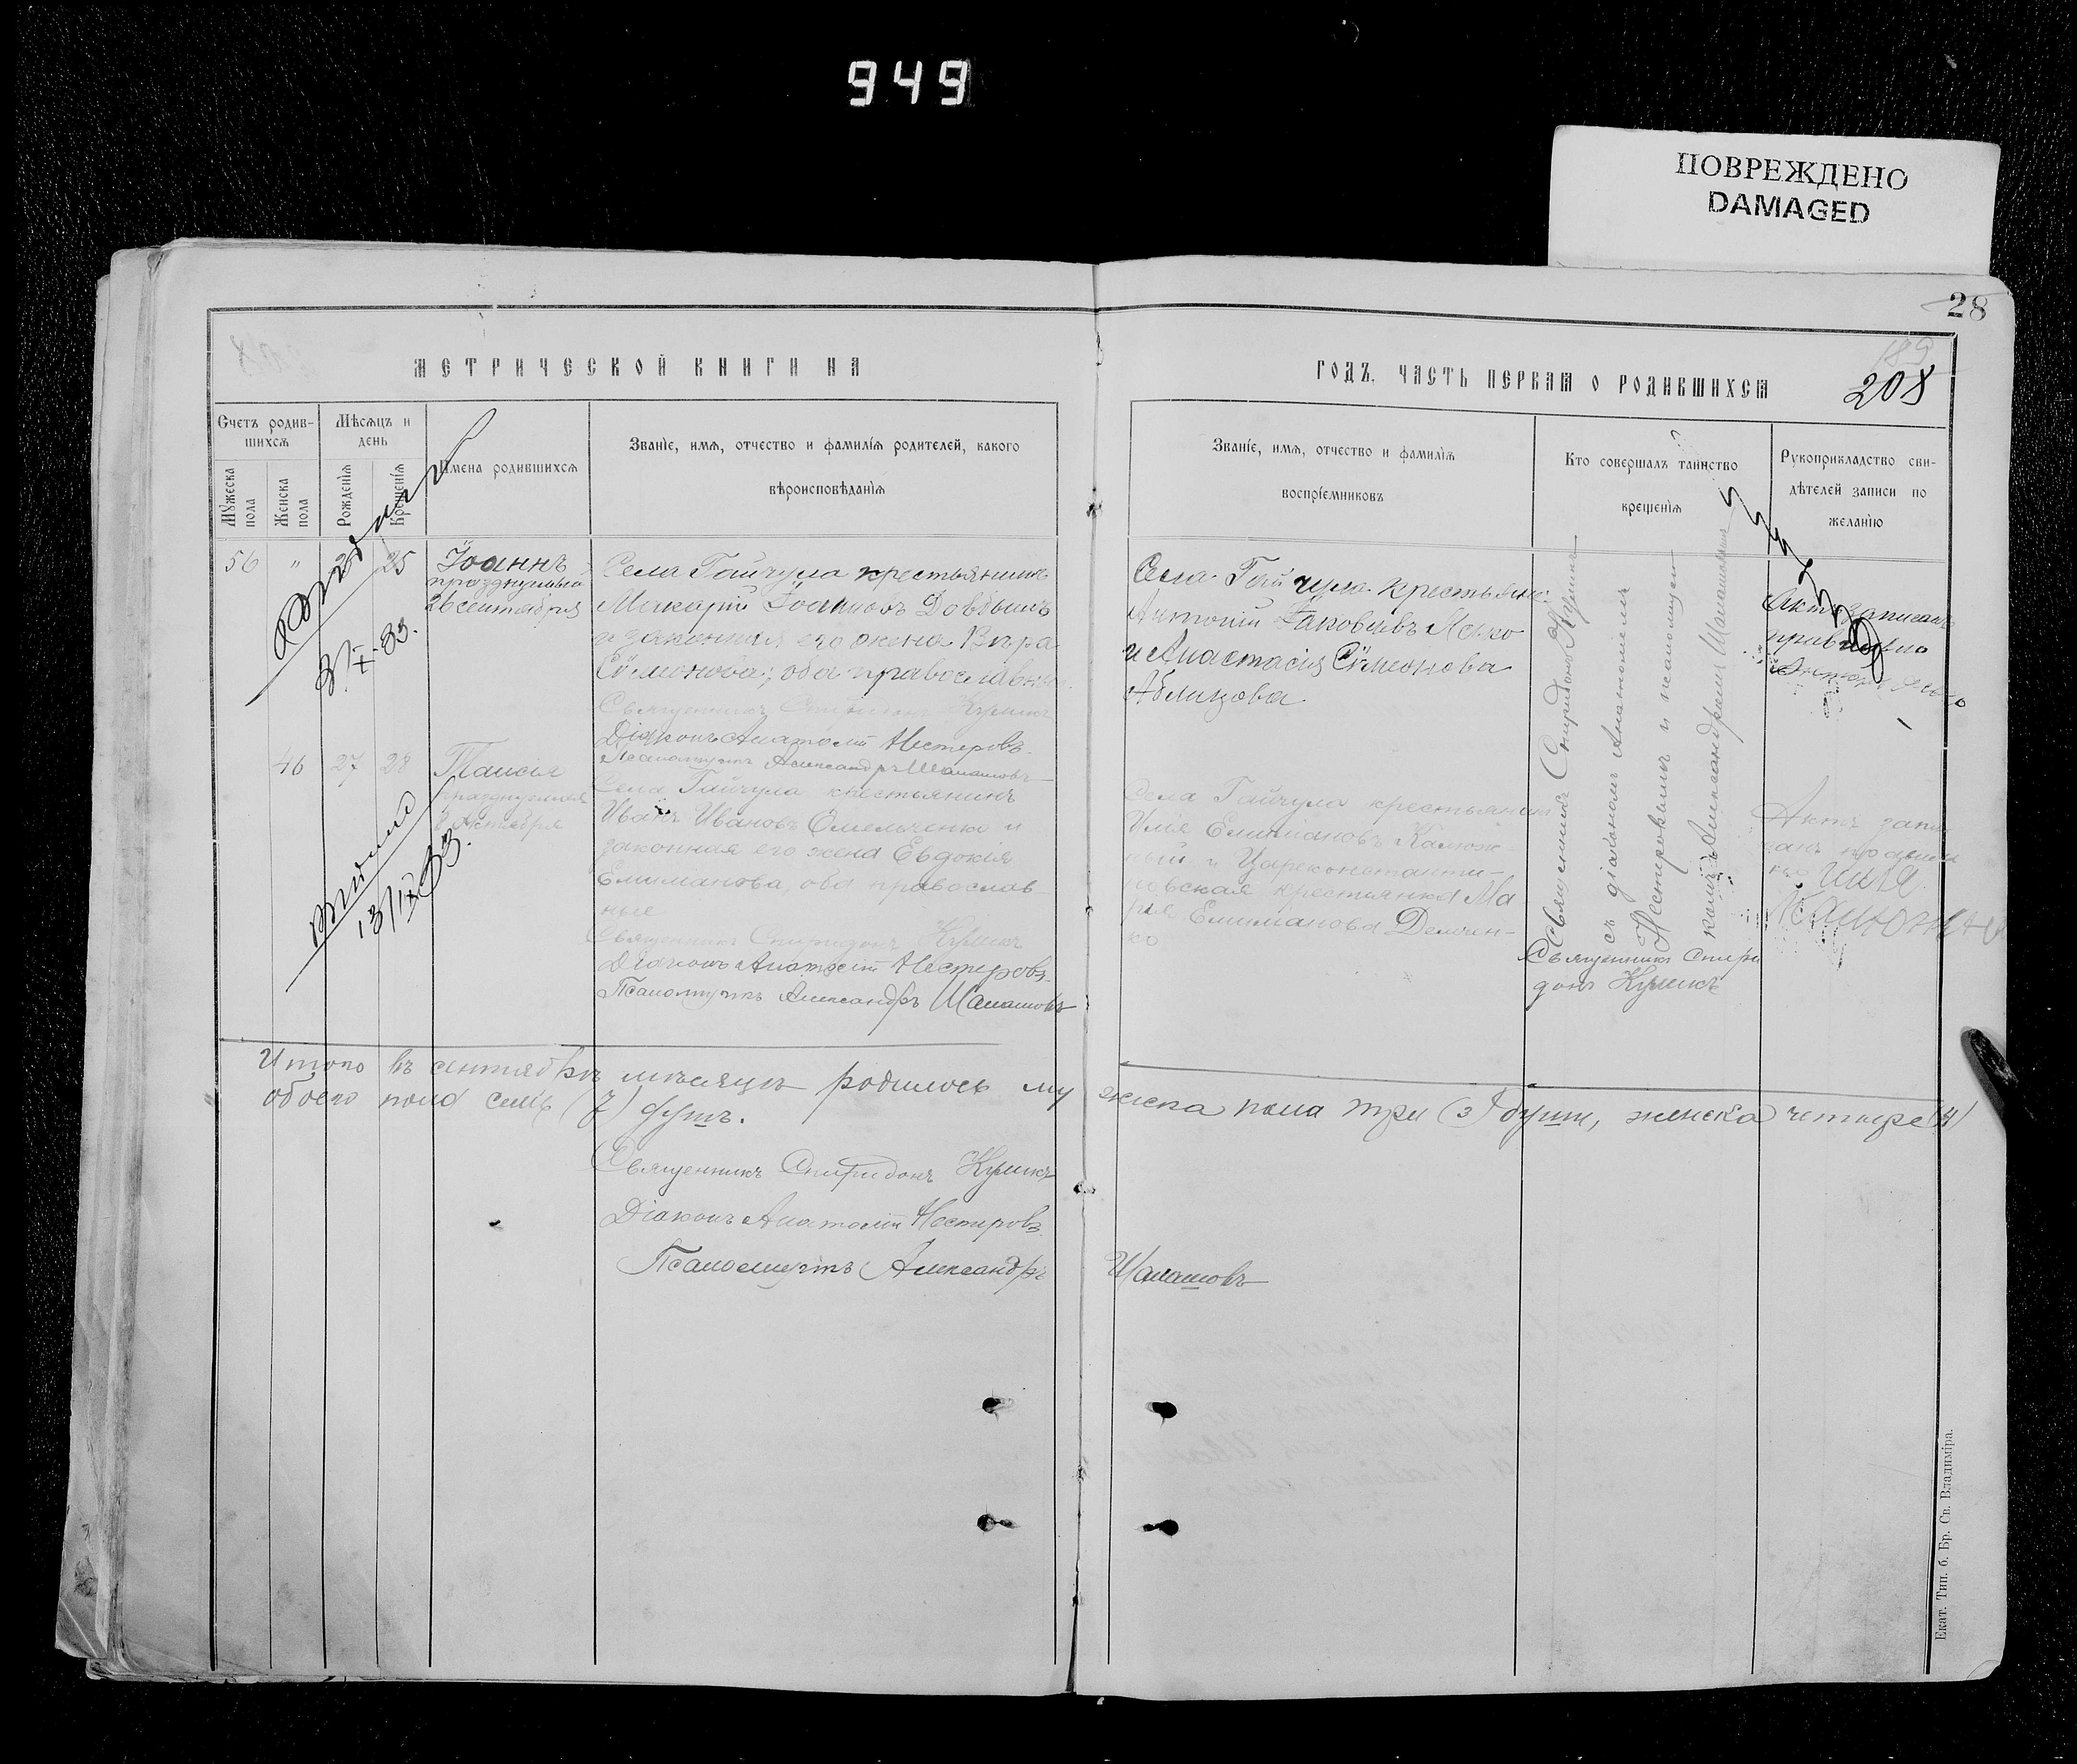 949
ПОВРЕЖДЕНО
DAMAGED
28
189
208
МЕТРИЧЕСКОЙ КНИГИ НА
ГОДЪ, ЧАСТЬ ПЕРВАЯ О РОДИВШИХСЯ
Счетъ родив-
шихся
Мѣсяцъ и
день
Мужеска
пола
Женска
пола
Рожденія
Крещенія
Имена родившихся
Званіе, имя, отчество и фамилія родителей, какого
вѣроисповѣданія
Званіе, имя, отчество и фамилія
воспріемниковъ
Кто совершалъ таинство
крещенія
Рукоприкладство сви-
дѣтелей записи по
желанію
56 " 25
Іоаннъ
празднуемаго
26 сентября
Села Гайчула крестьянинъ
Макарій Іоанновъ Довбышъ
и законная его жена Вѣра
Сѵмеонова; оба православные
Священникъ Спиридонъ Куликъ
Діаконъ Анатолій Нестеровъ
Псаломщикъ Александръ Шаламовъ
Села Гайчула крестьяне
Антоній Іаковлевъ
и Анастасія Сѵмеонова
Аблизова
Священникъ Спиридонъ Куликъ
съ діакономъ Анатоліемъ
Нестеровымъ и псаломщи-
комъ Александромъ Шаламовымъ
Актъ записанъ
правильно
46 27 28
Таисія
празднуемыя
8 октября
Села Гайчула крестьянинъ
Иванъ Ивановъ Омельченко и
законная его жена Евдокія
Емиліанова, оба православ-
ные
Священникъ Спиридонъ Куликъ
Діаконъ Анатолій Нестеровъ
Псаломщикъ Александръ Шаламовъ
Села Гайчула крестьянинъ
Илія Емиліановъ Калюж-
ный и Цареконстанти-
новская крестьянка Ма
рія Емиліанова Демчен-
ко
Священникъ Спири
донъ Куликъ
Актъ запи-
санъ правиль
но Илія
13/IX 33.
Итого въ сентябрѣ мѣсяцѣ родилось му жеска пола три (3) душъ, женска четыре (4)
обоего пола семь (7) душъ.
Священникъ Спиридонъ Куликъ
Діаконъ Анатолій Нестеровъ
Псаломщикъ Александръ Шаламовъ
Екат. Тип. б. Бр. Св. Владиміра.